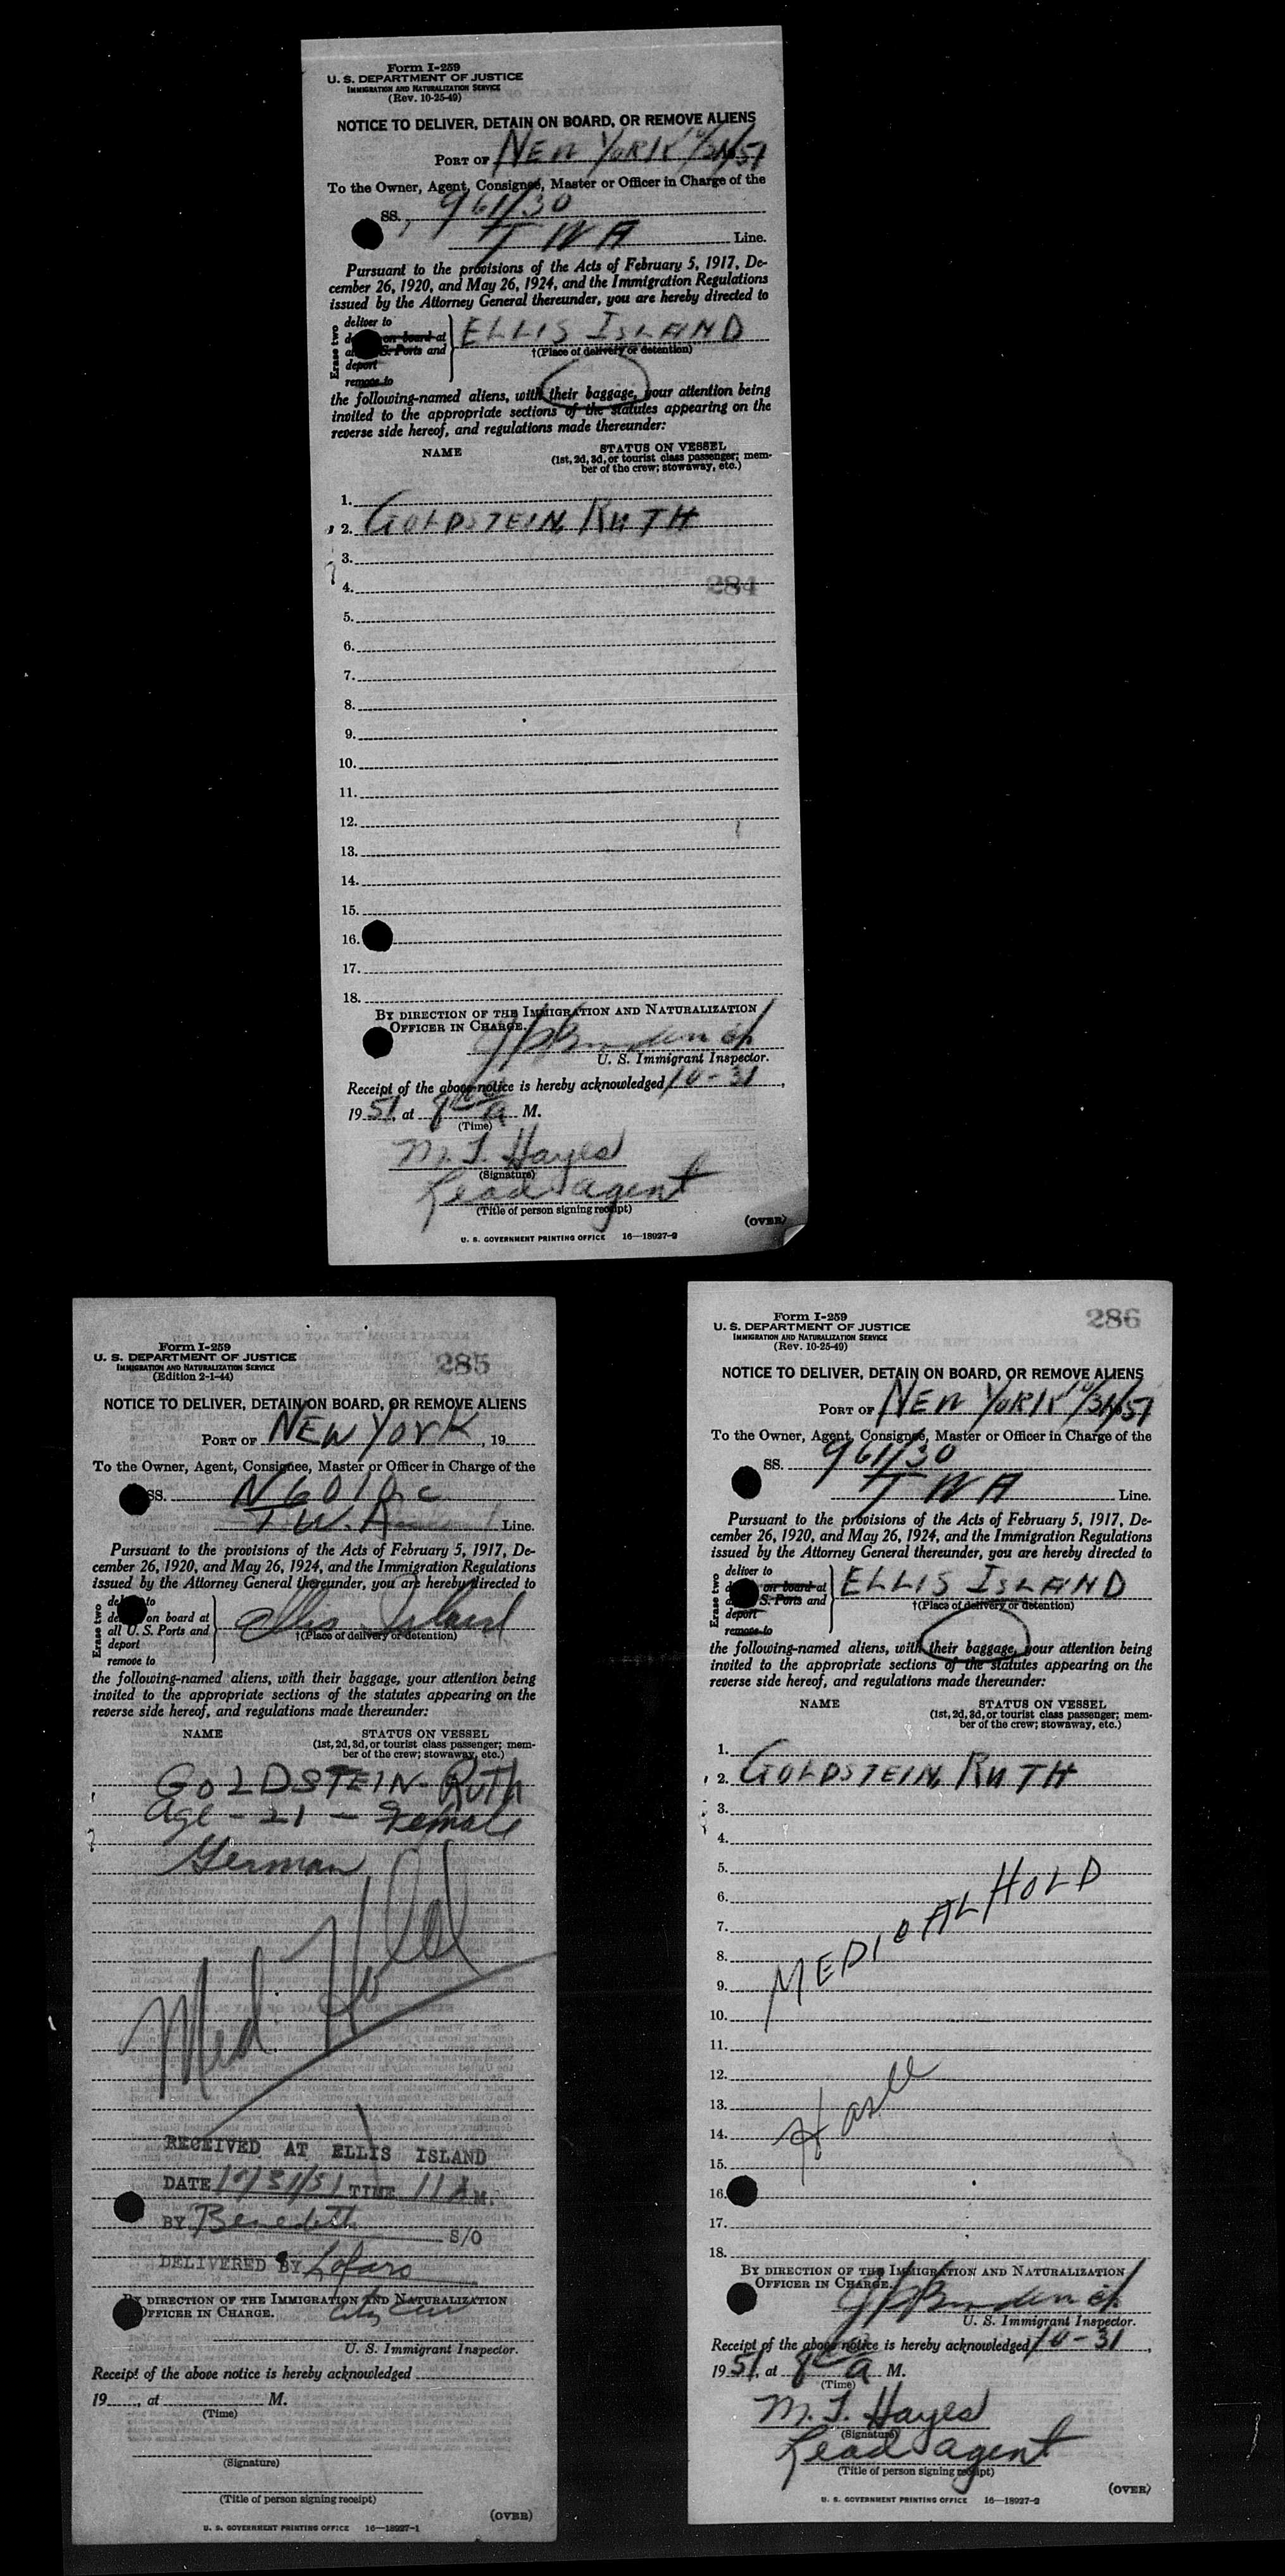 Form I-259
U. S. DEPARTMENT OF JUSTICE
IMMIGRATION AND NATURALIZATION SERVICE
(Rev. 10-25-49)
NOTICE TO DELIVER, DETAIN ON BOARD, OR REMOVE ALIENS
PORT OF NEW YORK 10/31/51
To the Owner, Agent, Consignee, Master or Officer in Charge of the
SS. 961/30
TWA Line.
Pursuant to the provisions of the Acts of February 5, 1917, De-
cember 26, 1920, and May 26, 1924, and the Immigration Regulations
issued by the Attorney General thereunder, you are hereby directed to
Erase two
deliver to
on board at
S. Ports and
deport
remove to
ELLIS ISLAND
†(Place of delivery or detention)
the following-named aliens, with their baggage, your attention being
invited to the appropriate sections of the statutes appearing on the
reverse side hereof, and regulations made thereunder:
NAME STATUS ON VESSEL
(1st, 2d, 3d, or tourist class passenger; mem-
ber of the crew; stowaway, etc.)
1.
2. GOLDSTEIN, RUTH
3.
284
4.
5.
6.
7.
8.
9.
10.
11.
12.
13.
14.
15.
16.
17.
18.
BY DIRECTION OF THE IMMIGRATION AND NATURALIZATION
OFFICER IN CHARGE.
U. S. Immigrant Inspector.
Receipt of the above notice is hereby acknowledged 10-31,
1951, at a M.
(Time)
M. T. Hayes
(Signature)
Lead agent
(Title of person signing receipt)
(OVER)
U. S. GOVERNMENT PRINTING OFFICE 16—18927-2
285
Form I-259
U. S. DEPARTMENT OF JUSTICE
IMMIGRATION AND NATURALIZATION SERVICE
(Edition 2-1-44)
NOTICE TO DELIVER, DETAIN ON BOARD, OR REMOVE ALIENS
PORT OF NEW YORK, 19
To the Owner, Agent, Consignee, Master or Officer in Charge of the
SS. N6010c
T.W.A. Line.
Pursuant to the provisions of the Acts of February 5, 1917, De-
cember 26, 1920, and May 26, 1924, and the Immigration Regulations
issued by the Attorney General thereunder, you are hereby directed to
Erase two
to
on board at
all U. S. Ports and
deport
remove to
Ellis Island
†(Place of delivery or detention)
the following-named aliens, with their baggage, your attention being
invited to the appropriate sections of the statutes appearing on the
reverse side hereof, and regulations made thereunder:
NAME STATUS ON VESSEL
(1st, 2d, 3d, or tourist class passenger; mem-
ber of the crew; stowaway, etc.)
GOLDSTEIN - RUTH
Age - 21 - Female
German
Med. Hold
RECEIVED AT ELLIS ISLAND
DATE 10/31/51 TIME 11 A M.
BY Benedetto S/O
DELIVERED BY Lofaro
BY DIRECTION OF THE IMMIGRATION AND NATURALIZATION
OFFICER IN CHARGE.
U. S. Immigrant Inspector.
Receipt of the above notice is hereby acknowledged
19, at M.
(Time)
(Signature)
(Title of person signing receipt)
(OVER)
U. S. GOVERNMENT PRINTING OFFICE 16—18927-1
286
Form I-259
U. S. DEPARTMENT OF JUSTICE
IMMIGRATION AND NATURALIZATION SERVICE
(Rev. 10-25-49)
NOTICE TO DELIVER, DETAIN ON BOARD, OR REMOVE ALIENS
PORT OF NEW YORK 10/31/51
To the Owner, Agent, Consignee, Master or Officer in Charge of the
SS. 961/30
TWA Line.
Pursuant to the provisions of the Acts of February 5, 1917, De-
cember 26, 1920, and May 26, 1924, and the Immigration Regulations
issued by the Attorney General thereunder, you are hereby directed to
Erase two
deliver to
on board at
S. Ports and
deport
remove to
ELLIS ISLAND
†(Place of delivery or detention)
the following-named aliens, with their baggage, your attention being
invited to the appropriate sections of the statutes appearing on the
reverse side hereof, and regulations made thereunder:
NAME STATUS ON VESSEL
(1st, 2d, 3d, or tourist class passenger; mem-
ber of the crew; stowaway, etc.)
1.
2. GOLDSTEIN, RUTH
3.
4.
5.
6.
7.
8.
9.
MEDICAL HOLD
10.
11.
12.
13.
14.
15.
16.
17.
18.
BY DIRECTION OF THE IMMIGRATION AND NATURALIZATION
OFFICER IN CHARGE.
U. S. Immigrant Inspector.
Receipt of the above notice is hereby acknowledged 10-31,
1951, at a M.
(Time)
M. T. Hayes
(Signature)
Lead agent
(Title of person signing receipt)
(OVER)
U. S. GOVERNMENT PRINTING OFFICE 16—18927-2